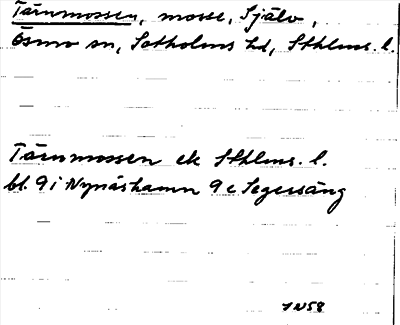 Tärnmossen, mosse, Själv,
Ösmo sn, Sotholms hd, Sthlms. l.
Tärnmossen ek Sthlms. l.
bl. 9i Nynäshamn 9e Segersäng
1N58